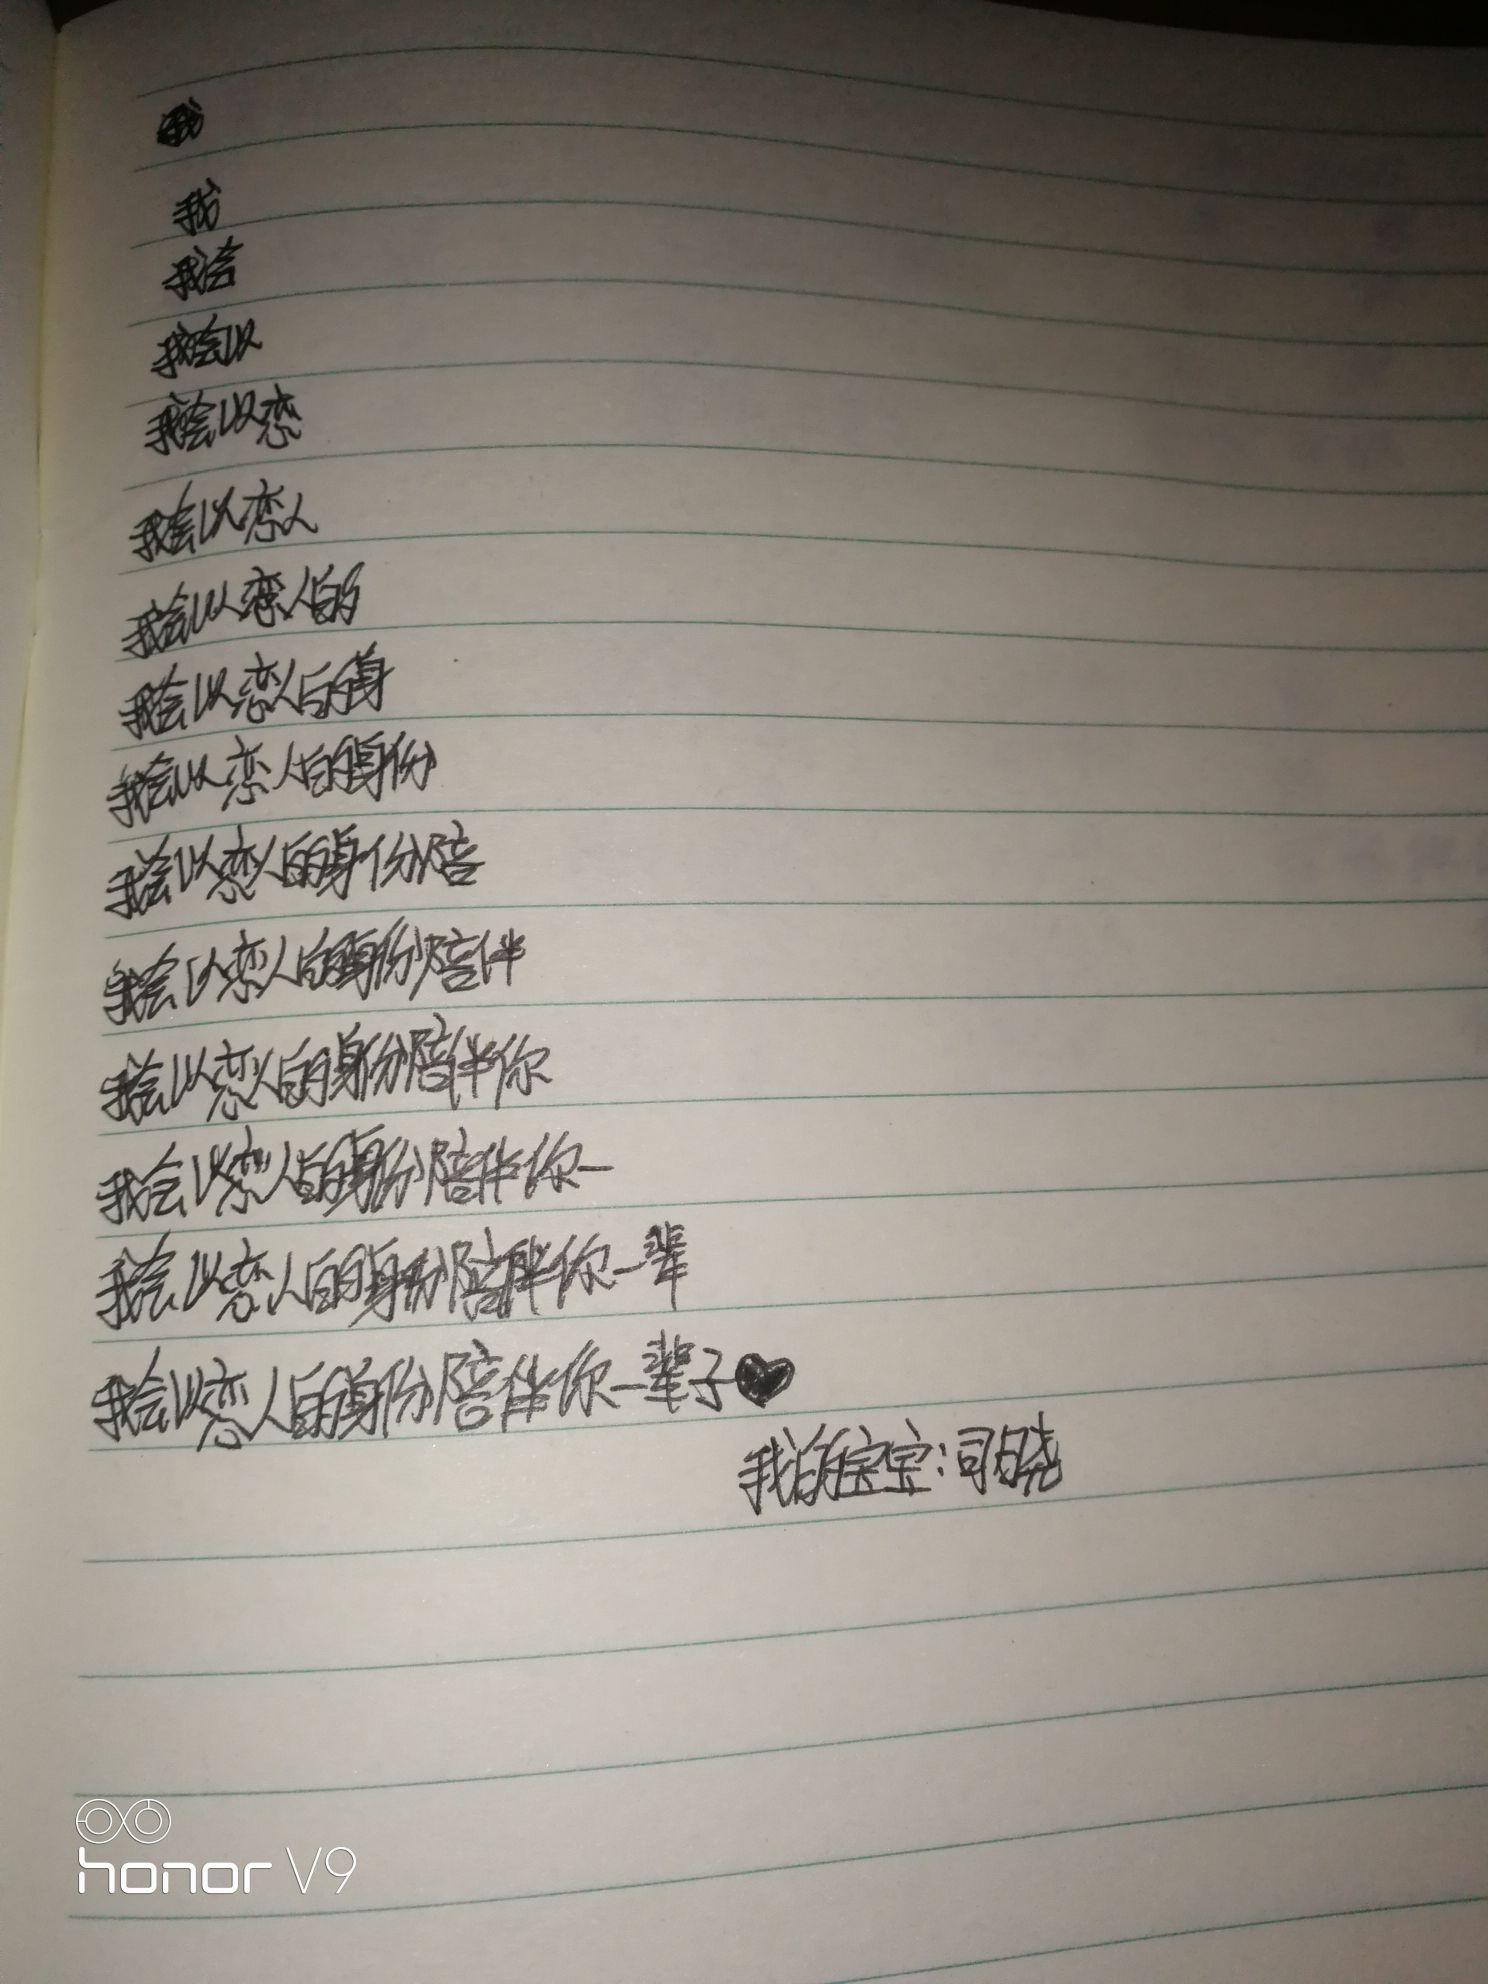 我
我会
我会以
我会以恋
我会以恋人
我会以恋人的
我会以恋人的身
我会以恋人的身份
我会以恋人的身份陪
我会以恋人的身份陪伴
我会以恋人的身份陪伴你
我会以恋人的身份陪伴你一
我会以恋人的身份陪伴你一辈
我会以恋人的身份陪伴你一辈子
我的宝宝:司晓
honor V9